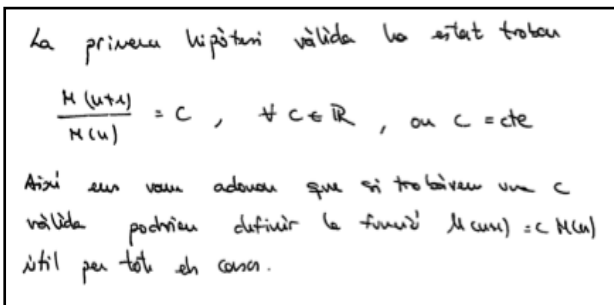 La primera hipòtesi vàlida ha estat trobar
M(n+1)/M(n) = C , ∀ C ∈ ℝ , on C = cte
Així ens vam adonar que si trobàvem una C
vàlida podríem definir la funció M(n+1) = C M(n)
útil per tots els casos.